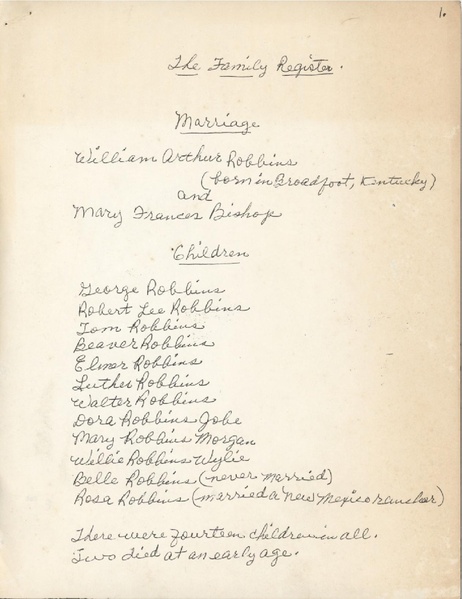 1.
The Family Register.
Marriage
William Arthur Robbins
(born in Broadfoot, Kentucky)
and
Mary Frances Bishop
Children
George Robbins
Robert Lee Robbins
Tom Robbins
Beaver Robbins
Elmer Robbins
Luther Robbins
Walter Robbins
Dora Robbins Jobe
Mary Robbins Morgan
Willie Robbins Wylie
Belle Robbins (never married)
Rosa Robbins (married a New Mexico rancher)
There were fourteen children in all.
Two died at an early age.